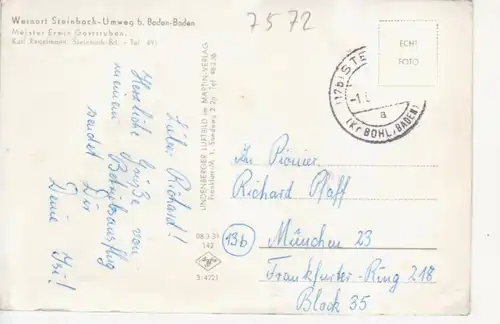 Weinort Steinbach-Umweg b. Baden-Baden
Meister Erwin Gaststuben.
Karl Regelmann, Steinbach-Bd. - Tel 491
7572
ECHT
FOTO
(17b) STE
-1.
a
(Kr. BÜHL, BADEN)
LINDENBERGER LUFTBILD im MARTIN-VERLAG
Frankfurt/M 1.
08 3 31
142
Agfa
3/4221
Lieber Richard!
Herzliche Grüße von
meinem Betriebsausflug
sendet Dir
Deine Isi!
13b
Richard Pfaff
München 23
Frankfurter-Ring 218
Block 35